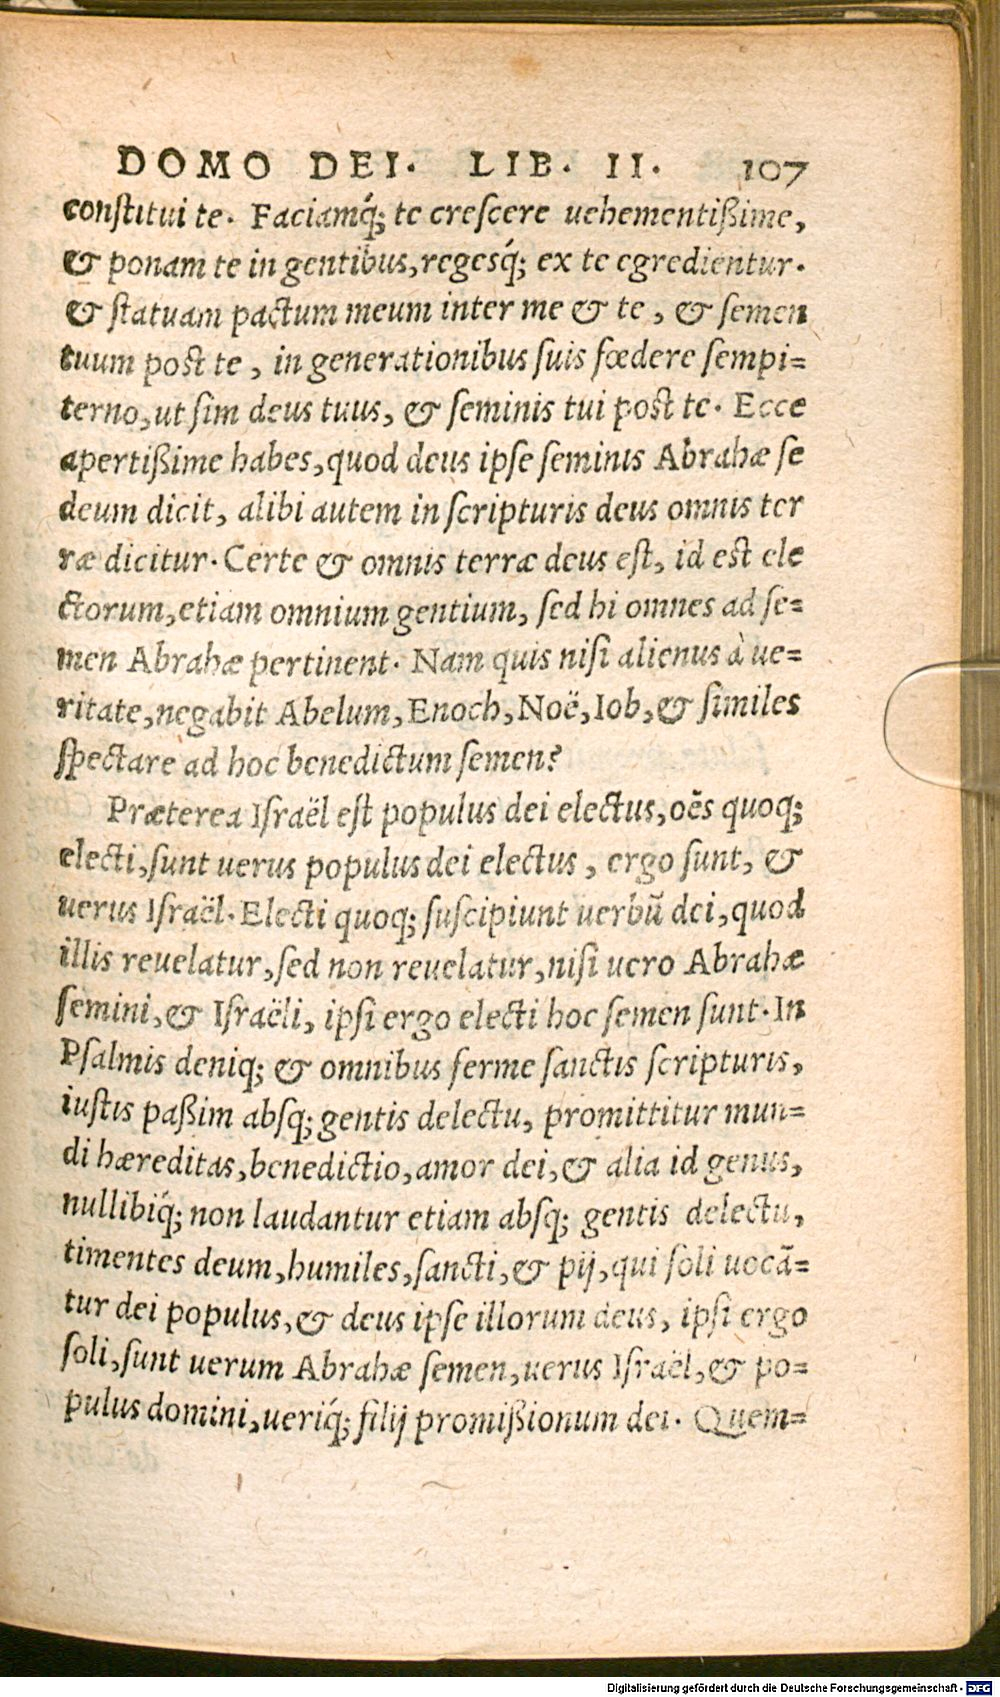 DOMO DEI. LIB. II. 107
conſtitui te. Faciamq́; te creſcere uehementißime,
& ponam te in gentibus, regesq́; ex te egredientur.
& ſtatuam pactum meum inter me & te, & ſemen
tuum poſt te, in generationibus ſuis fœdere ſempi=
terno, ut ſim deus tuus, & ſeminis tui poſt te. Ecce
apertißime habes, quod deus ipſe ſeminis Abrahæ ſe
deum dicit, alibi autem in ſcripturis deus omnis ter
ræ dicitur. Certe & omnis terræ deus eſt, id eſt ele
ctorum, etiam omnium gentium, ſed hi omnes ad ſe=
men Abrahæ pertinent. Nam quis niſi alienus à ue=
ritate, negabit Abelum, Enoch, Noë, Iob, & ſimiles
ſpectare ad hoc benedictum ſemen?
Præterea Iſraël eſt populus dei electus, oẽs quoq;
electi, ſunt uerus populus dei electus, ergo ſunt, &
uerus Iſraël. Electi quoq; ſuſcipiunt uerbũ dei, quod
illis reuelatur, ſed non reuelatur, niſi uero Abrahæ
ſemini, & Iſraëli, ipſi ergo electi hoc ſemen ſunt. In
Pſalmis deniq; & omnibus ferme ſanctis ſcripturis,
iuſtis paßim absq; gentis delectu, promittitur mun=
di hæreditas, benedictio, amor dei, & alia id genus,
nullibiq́; non laudantur etiam absq; gentis delectu,
timentes deum, humiles, ſancti, & pij, qui ſoli uocã=
tur dei populus, & deus ipſe illorum deus, ipſi ergo
ſoli, ſunt uerum Abrahæ ſemen, uerus Iſraël, & po=
pulus domini, ueriq́; filij promißionum dei. Quem=
Digitalisierung gefördert durch die Deutsche Forschungsgemeinschaft - DFG